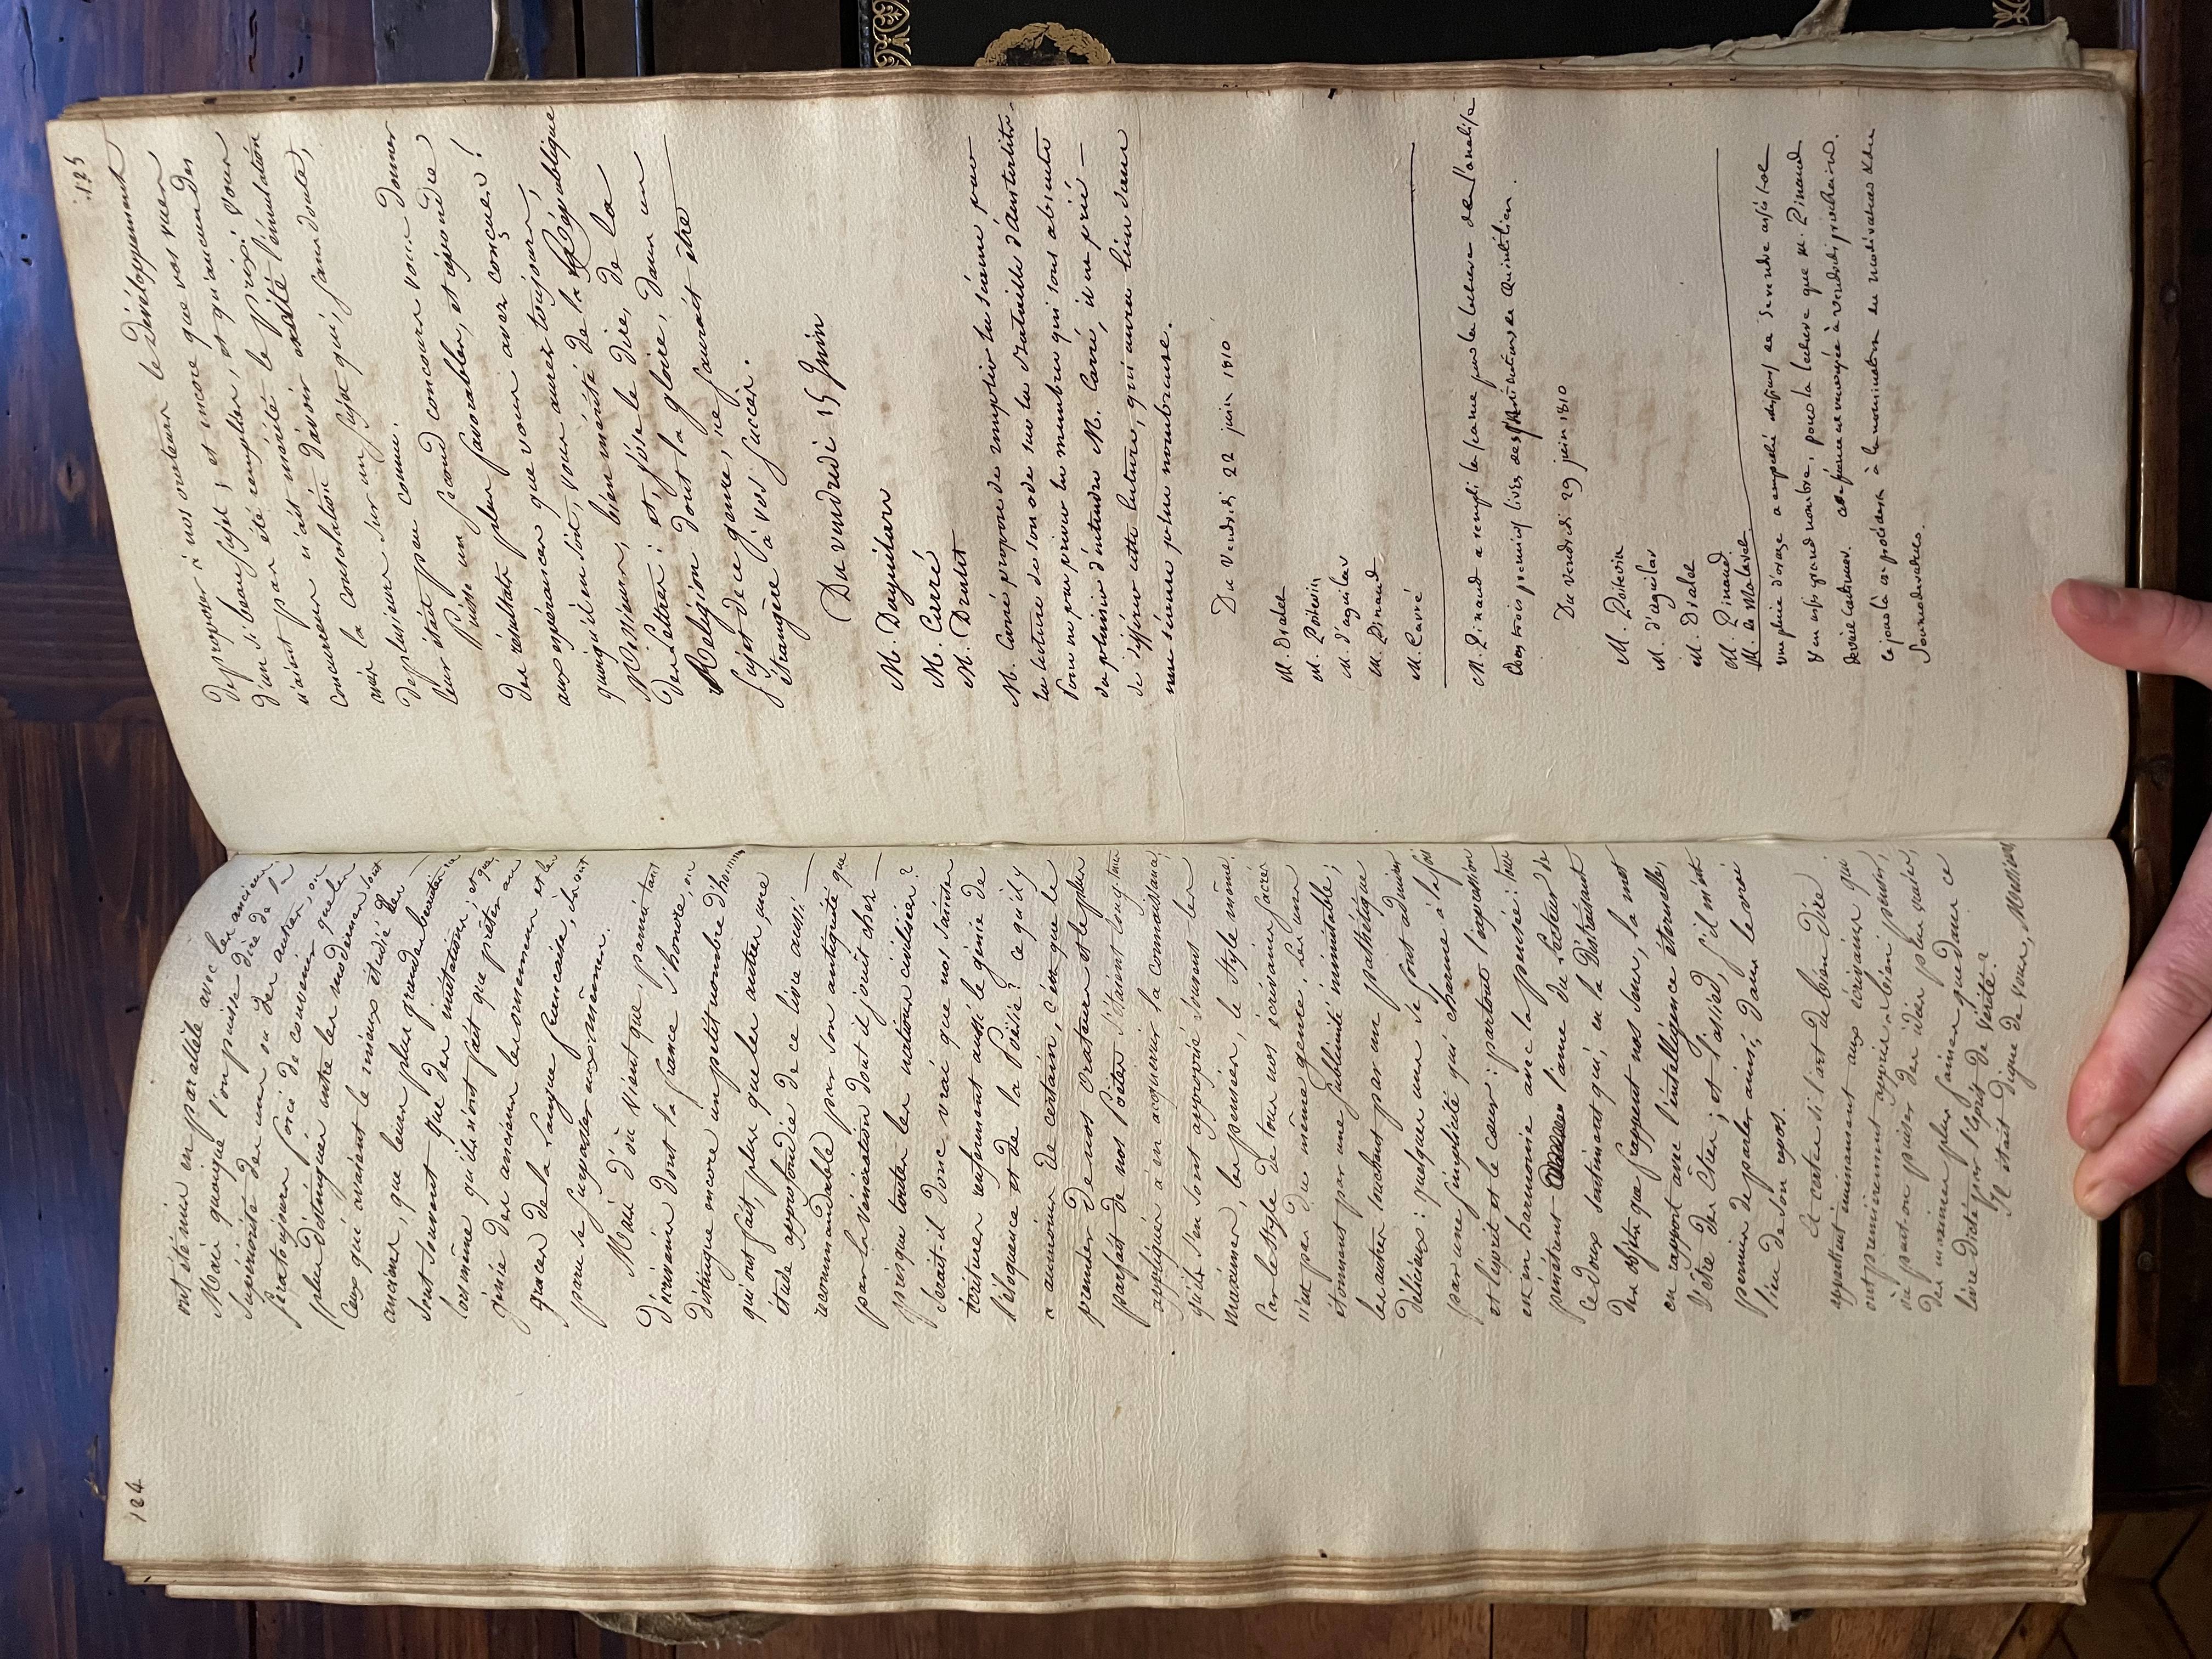 124
ont été mis en parallèle avec les anciens.
Mais quoique l'on puisse dire de la
supériorité des uns ou des autres, on
sera toujours forcé de convenir que les
plus distingués entre les modernes sont
ceux qui avaient le mieux étudié les
anciens, que leurs plus grandes beautés ne
sont souvent que des imitations, et que
lors même qu'ils n'ont fait que prêter au
génie des anciens les ornemens et les
graces de la langue française, ils ont
paru se surpasser eux mêmes.
Mais d'où vient que, parmi tant
d'écrivains dont la france s'honore, on
distingue encore un petit nombre d'hommes
qui ont fait, plus que les autres, une
étude approfondie de ce livre aussi
recommandable par son antiquité que
par la vénération dont il jouit chez
presque toutes les nations civilisées?
serait-il donc vrai que nos saintes
écritures renferment aussi le génie de
l'éloquence et de la Poësie? ce qu'il y
a au moins de certain, c'est que le
premier de nos orateurs et le plus
parfait de nos Poëtes s'étaient longtems
appliqués à en acquérir la connaissance,
qu'ils s'en sont approprié souvent les
maximes, les pensées, le style même.
Car le style de tous nos écrivains sacrés
n'est pas du même genre. Les uns
étonnent par une sublimité inimitable;
les autres touchent par un pathétique
délicieux: quelques uns se font admirer
par une simplicité qui charme à la fois
et l'esprit et le cœur: partout l'expression
est en harmonie avec la pensée: tous
pénètrent l'ame du Lecteur de
ce doux sentiment qui, en la distraisant
des objets que frappent nos sens, la met
en rapport avec l'intelligence éternelle,
l'être des êtres; et l'assied, s'il m'est
permis de parler ainsi, dans le vrai
lieu de son repos.
Et certes si l'art de bien dire
appartient éminemment aux écrivains qui
ont premierement appris à bien penser,
où peut-on puiser des idées plus vraies,
des maximes plus saines que dans ce
livre dicté par l'esprit de vérité?
Il était digne de vous, Messieurs,
125
de proposer à nos orateurs le développement
d'un si beau sujet; et encore que vos vues
n'aient pas été remplies, et qu'aucun des
concurrens n'ait mérité le prix, vous
avez la consolation d'avoir excité l'émulation
de plusieurs sur un sujet qui, sans doute,
leur était peu connu.
Puisse un second concours vous donner
des résultats plus favorables, et répondre
aux espérances que vous avez conçues!
quoiqu'il en soit, vous aurez toujours,
Messieurs, bien mérité de la République
des Lettres: et, j'ose le dire, de la
Religion dont la gloire, dans un
sujet de ce genre, ne saurait être
étrangère à vos succès.
Du vendredi 15 Juin
M. Daguilar
M. Carré
M. Drulet
M. Carré propose de remplir la séance par
la lecture de son ode sur la Bataille d'austerlitz.
Pour ne pas priver les membres qui sont absents
du plaisir d'entendre M. Carré, il est prié
de différer cette lecture, qui aura lieu dans
une séance plus nombreuse.
Du Vendredi 22 juin 1810
M. Dralet
M. Poitevin
M. d'aguilar
M. Pinaud
M. Carré
M. Pinaud a rempli la séance par la lecture de l'analise
des trois premiers livres des Institutions de Quintilien.
Du Vendredi 29 juin 1810
M. Poitevin
M. d'aguilar
M. Dralet
M. Pinaud
M. de Malaret
une pluie d'orage a empêché de se rendre
en assés grand nombre, pour la lecture que M. Pinaud
devait continuer. à vendredi prochain.
ce jour là on procédera à la nomination du modérateur et du
Sousmodérateur.